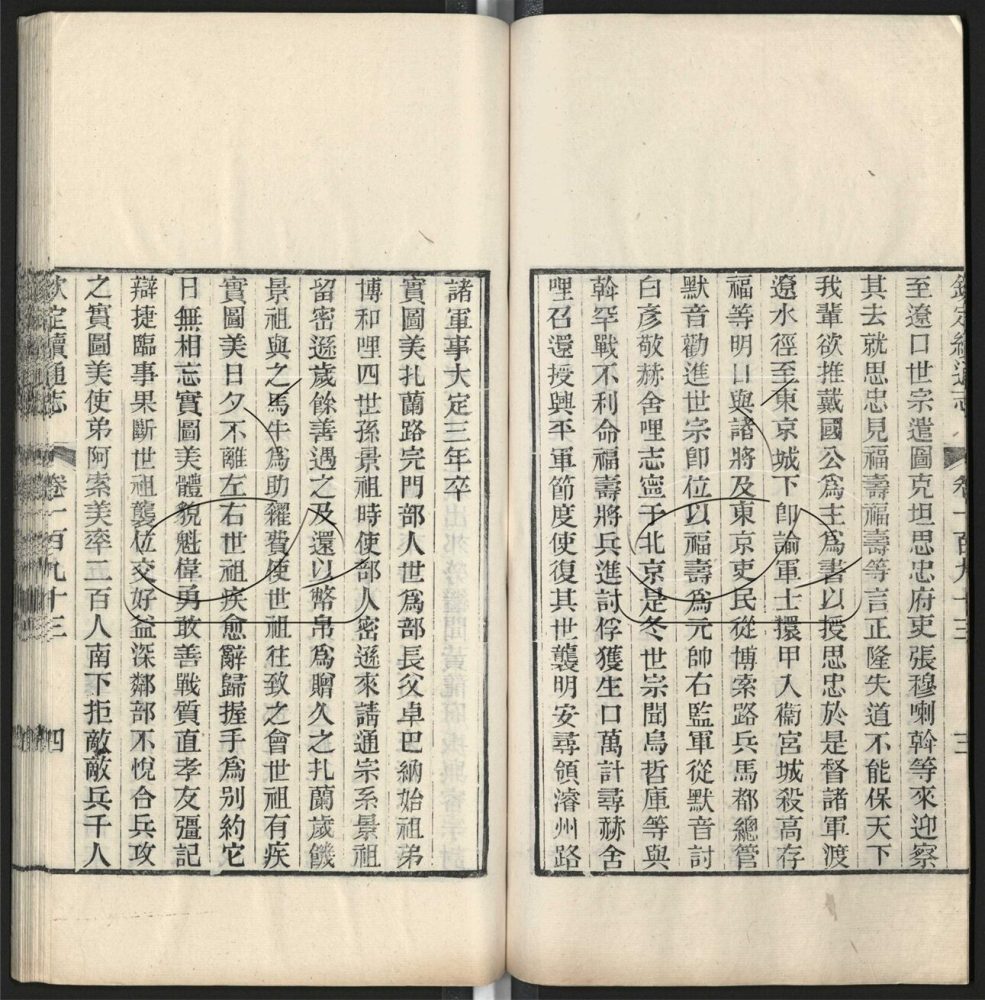 欽定續通志 卷一百九十三 三
至遼口世宗遣圖克坦思忠府吏張穆喇斡等來迎察
其去就思忠見福壽福壽等言正隆失道不能保天下
我輩欲推戴國公爲主爲書以授思忠於是督諸軍渡
遼水徑至東京城下卽諭軍士擐甲入衞宮城殺高存
福等明日與諸將及東京吏民從博索路兵馬都總管
默音勸進世宗卽位以福壽爲元帥右監軍從默音討
白彥敬赫舍哩志寧于北京是冬世宗聞烏哲庫等與
斡罕戰不利命福壽將兵進討俘獲生口萬計尋赫舍
哩召還授興平軍節度使復其世襲明安尋領濬州路
諸軍事大定三年卒
實圖美扎蘭路完門部人世爲部長父卓巴納始祖弟
博和哩四世孫景祖時使部人密遜來請通宗系景祖
留密遜歲餘善遇之及還以幣帛爲贈久之扎蘭歲饑
景祖與之馬牛爲助糴費使世祖往致之會世祖有疾
實圖美日夕不離左右世祖疾愈辭歸握手爲別約它
日無相忘實圖美體貌魁偉勇敢善戰質直孝友彊記
辯捷臨事果斷世祖襲位交好益深鄰部不悅合兵攻
之實圖美使弟阿索美率五百人南下拒敵敵兵千人
欽定續通志 卷一百九十三 四